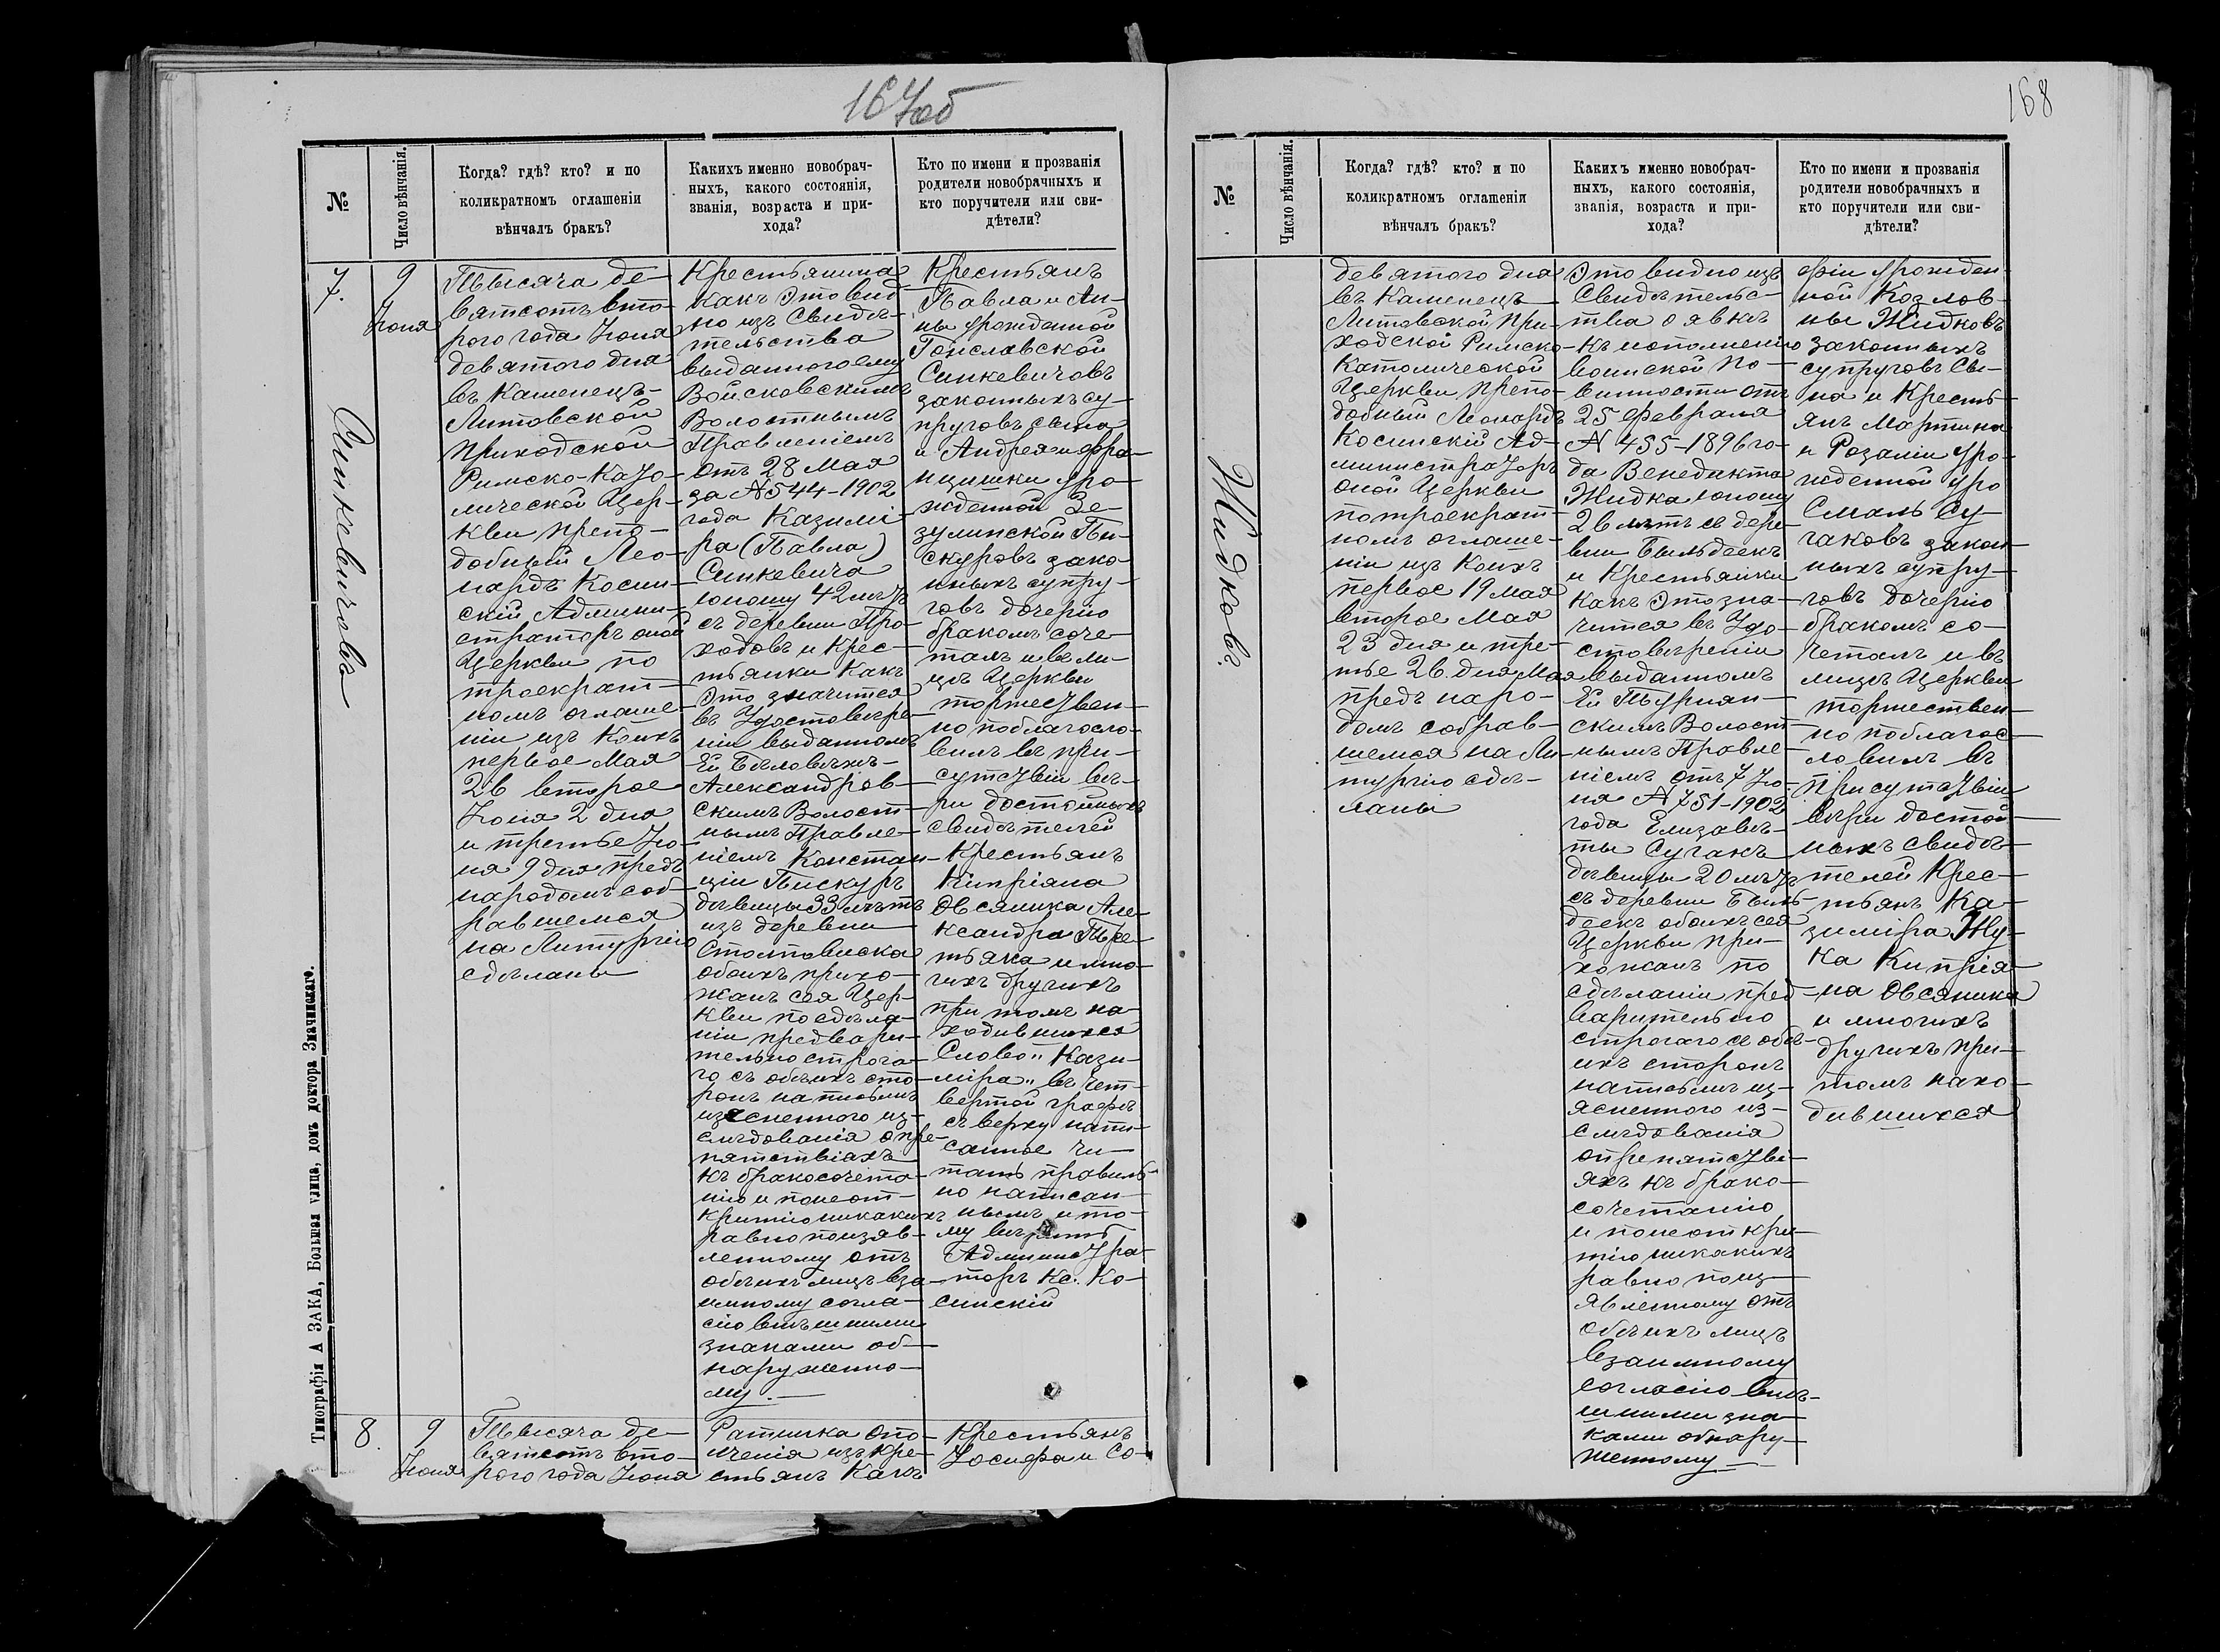 167об
№
Число вѣнчанія.
Когда? гдѣ? кто? и по
коликратномъ оглашеніи
вѣнчалъ бракъ?
Какихъ именно новобрач-
ныхъ, какого состоянія,
званія, возраста и при-
хода?
Кто по имени и прозванія
родители новобрачныхъ и
кто поручители или сви-
дѣтели?
7.
9
Іюня
Синкевичовъ
Тысяча де-
вятсотъ вто-
рого года Іюня
девятого дня
въ Каменецъ-
Литовской
приходской
Римско-Като-
лической Цер-
кви препо-
добный Лео-
нардъ Косин-
скій Админи-
страторъ оной
Церкви по
троекрат-
номъ оглаше-
ніи изъ коихъ
первое Мая
26 второе
Іюня 2 дня
и третье Ію-
ня 9 дня предъ
народомъ соб-
равшемся
на Литургію
сдѣланы
Крестьянина
какъ это вид-
но изъ Свидѣ-
тельства
выданного ему
Войсковскимъ
Волостнымъ
Правленіемъ
отъ 28 Мая
за N 544-1902
года Казимі-
ра (Павла)
Синкевича
юношу 42 лѣтъ
съ деревни Про-
ходовъ и Крес-
тьянки какъ
это значится
въ Удостовѣре-
ніи выданномъ
Ей Бѣловѣжъ-
Александров-
скимъ Волост-
нымъ Правле-
ніемъ Констан-
ціи Пискуръ
дѣвицы 33 лѣтъ
изъ деревни
Столповиска
обоихъ прихо-
жанъ сея Цер-
кви по сдѣла-
ніи предвари-
тельно строга-
го съ обѣихъ сто-
ронъ на письмѣ
изясненного из-
слѣдованія о пре-
пятствіахъ
къ бракосочета-
нію и понеот-
критію никакихъ
равно поизяв-
ленному отъ
обѣихъ лицъ вза-
имному согла-
сію внѣшними
знаками об-
наруженно-
му.
Крестьянъ
Павла и Ан-
ны урожденной
Гойславской
Синкевичовъ
законныхъ су-
пруговъ сына
и Андрея и Фра-
нцишки уро-
жденной Зе-
зулинской Пи-
скуровъ зако-
нныхъ супру-
говъ дочерію
бракомъ соче-
талъ и въ ли-
цѣ Церкви
торжествен-
но поблагосло-
вилъ въ при-
сутствіи вѣ-
ри достойныхъ
свидѣтелей
Крестьянъ
Кипріяна
Овсяника Але-
ксандра Тре-
тьяка и мно-
гихъ другихъ
при томъ на-
ходившихся
Слово „Кази-
міра" въ чет-
вертой графѣ
съ верху напи-
санное чи-
тать правиль-
но написан-
нымъ и то-
му вѣрить
Администра-
торъ Кс. Ко-
синскій
8.
9
Іюня
Тысяча де-
вятсотъ вто-
рого года Іюня
Ратника опо-
лченія изъ кре-
стьянъ какъ
Крестьянъ
Іосифа и Со-
Типографія А ЗАКА, Большая улица, домъ доктора Змачинскаго.
168
№
Число вѣнчанія.
Когда? гдѣ? кто? и по
коликратномъ оглашеніи
вѣнчалъ бракъ?
Какихъ именно новобрач-
ныхъ, какого состоянія,
званія, возраста и при-
хода?
Кто по имени и прозванія
родители новобрачныхъ и
кто поручители или сви-
дѣтели?
Жидковъ
девятого дня
въ Каменецъ-
Литовской при-
ходской Римско-
Католической
Церкви препо-
добный Леонардъ
Косинскій Ад-
министраторъ
оной Церкви
по троекрат-
номъ оглаше-
ніи изъ коихъ
первое 19 мая
второе Мая
23 дня и тре-
тье 26 дня Мая
предъ наро-
домъ собрав-
шемся на Ли-
тургію сдѣ-
ланы
Это видно изъ
Свидѣтельс-
тва о явкѣ
къ исполненію
воинской по-
винности отъ
25 февраля
N 455-1896 го-
да Венедикта
Жидка юношу
26 лѣтъ съ дере-
вни Быльдеекъ
и Крестьянки
какъ это зна-
чится въ Удо-
стовѣреніи
выданномъ
Ей Турнян-
скимъ Волост-
нымъ Правле-
ніемъ отъ 7 Ію-
ня N 751-1902
года Елизаве-
ты Сугакъ
дѣвицы 20 лѣтъ
съ деревни Быль-
деекъ обоихъ сея
Церкви при-
хожанъ по
сдѣланіи пред-
варительно
строгаго съ обѣ-
ихъ сторонъ
на письмѣ из-
ясненного из-
слѣдованія
о препятстві-
яхъ къ брако-
сочетанію
и понеоткри-
тію никакихъ
равно поиз-
явленному отъ
обѣихъ лицъ
взаимному
согласію внѣ-
шними зна-
ками обнару-
женному
фіи урожден-
ной Козлов-
ны Жидковъ
законныхъ
супруговъ Сы-
на и Кресть-
янъ Мартина
и Розаліи уро-
жденной уро
Смаль Су-
гаковъ закон-
ныхъ супру-
говъ дочерію
бракомъ со-
четалъ и въ
лицѣ Церкви
торжествен-
но поблагос-
ловилъ въ
присутствіи
вѣри достой-
ныхъ свидѣ-
телей Крес-
тьянъ Ка-
зиміра Жу-
ка Кипрія-
на Овсяника
и многихъ
другихъ при-
томъ нахо-
дившихся